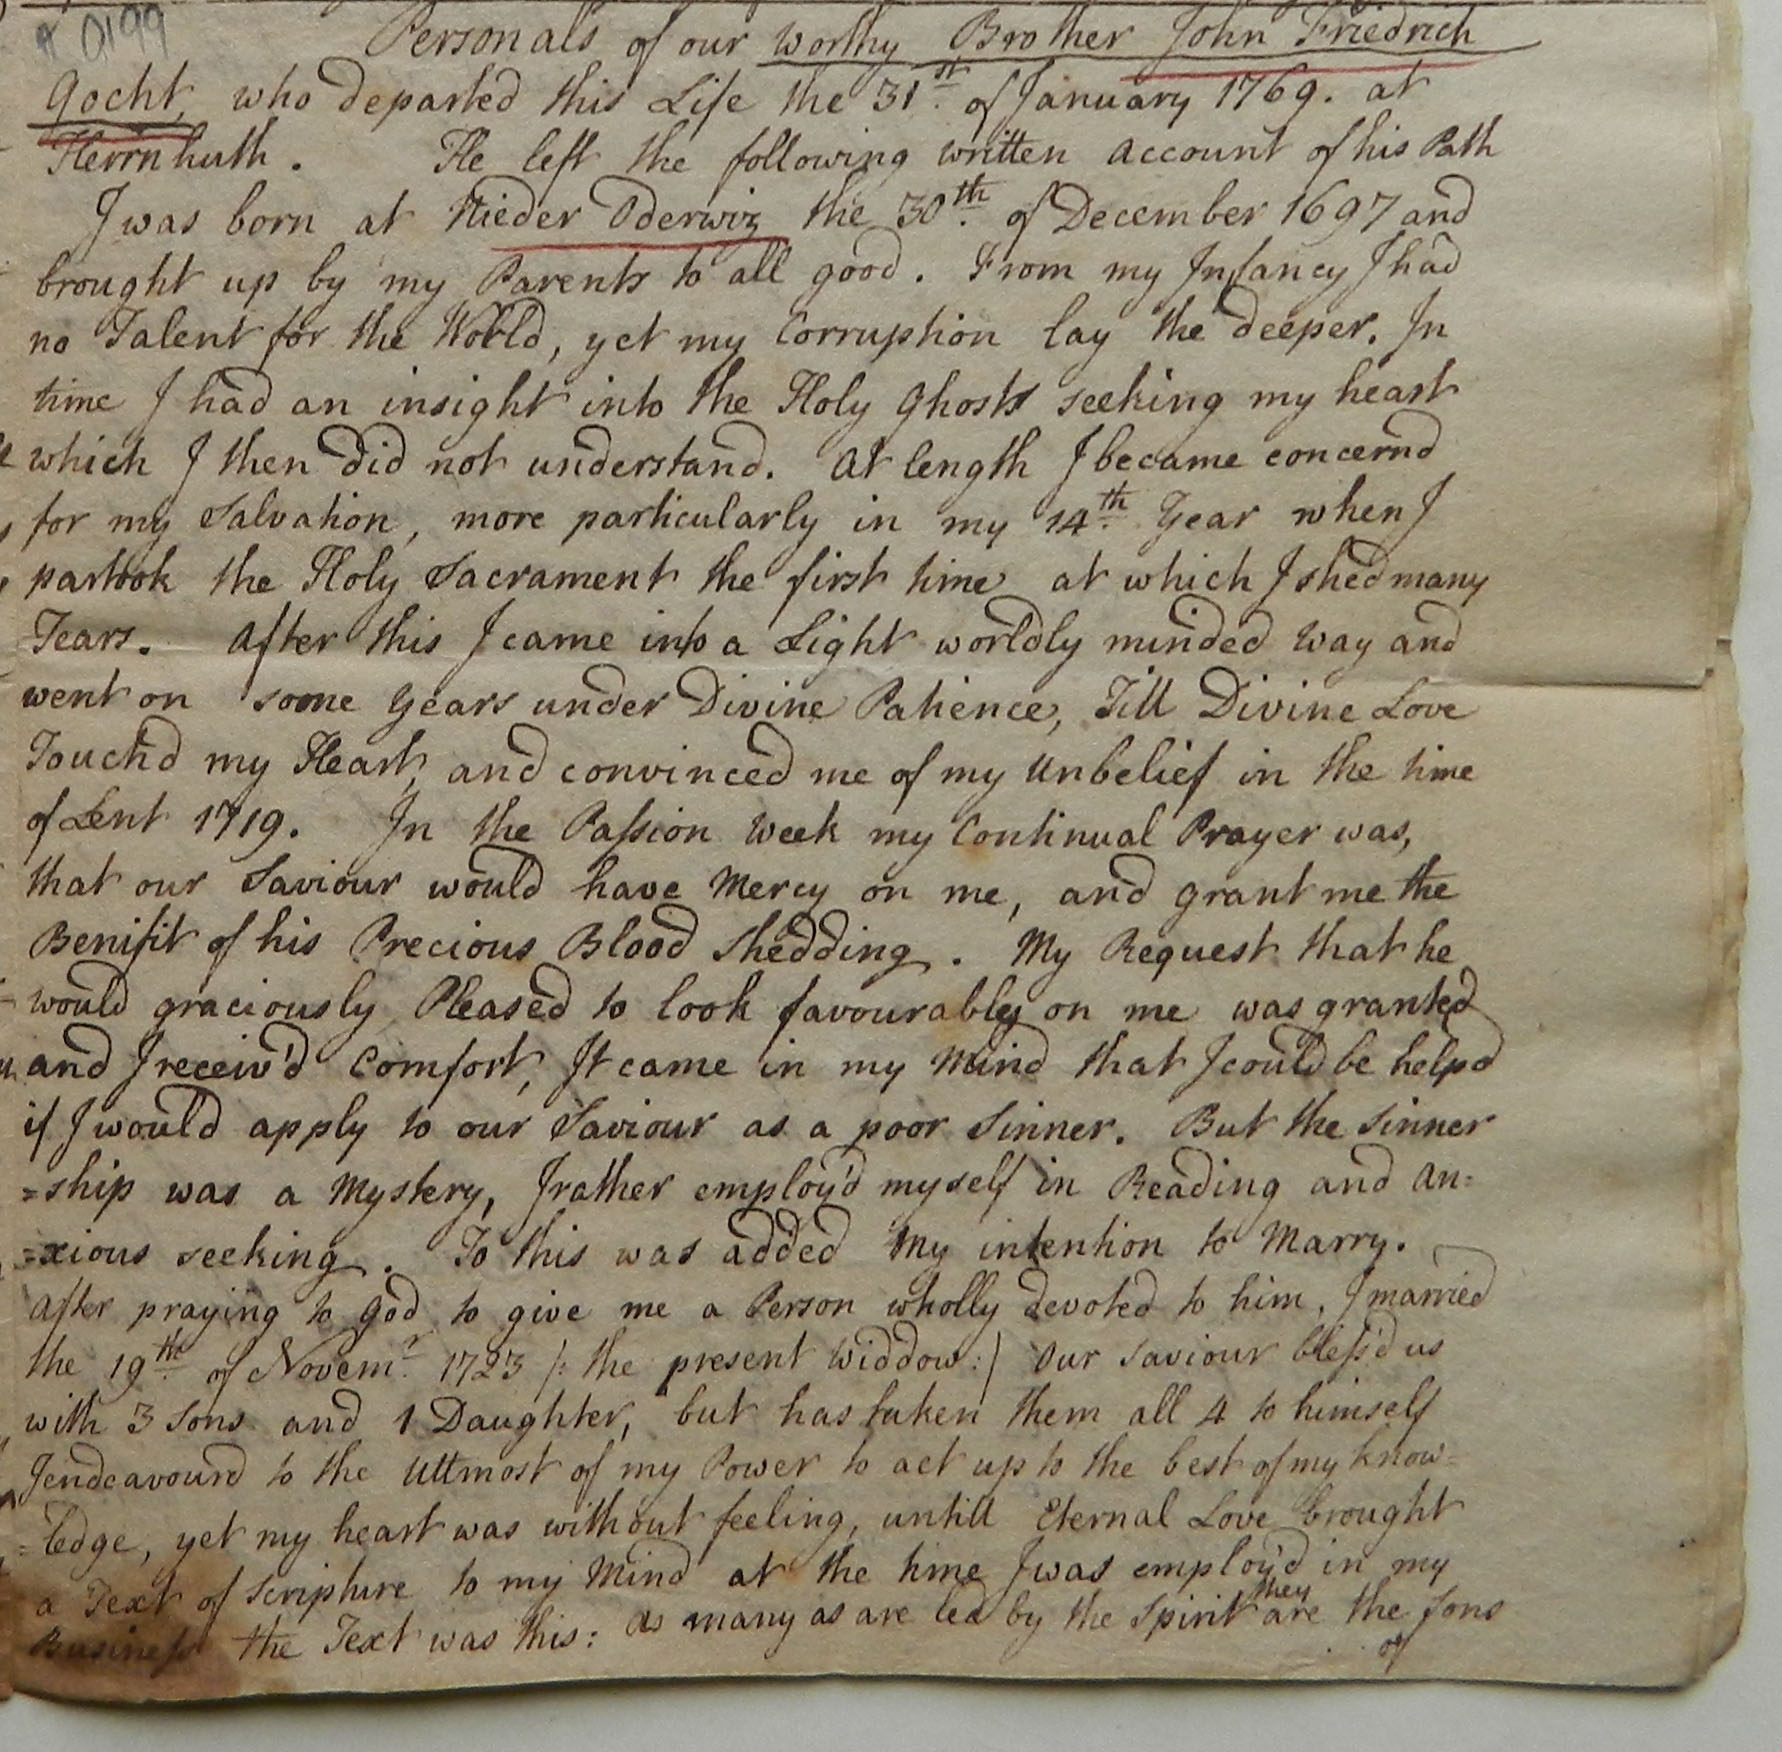 R 0199
Personals of our worthy Brother John Friedrich
Gocht, who departed this Life the 31st. of January 1769. at
Herrnhuth. He left the following written account of his Path
I was born at Nieder Oderwiz the 30th. of December 1697 and
brought up by my Parents to all good. From my Infancy I had
no Talent for the World, yet my Corruption lay the deeper. In
time I had an insight into the Holy Ghosts seeking my heart
which I then did not understand. At length I became concernd
for my Salvation, more particularly in my 14th. Year when I
partook the Holy Sacrament the first time at which I shed many
Tears. After this I came into a Light worldly minded Way and
went on some Years under Divine Patience, Till Divine Love
Touch'd my Heart, and convinced me of my Unbelief in the time
of Lent 1719. In the Paſsion Week my Continual Prayer was,
that our Saviour would have Mercy on me, and grant me the
Benifit of his Precious Blood Shedding. My Request that he
would graciously Pleased to look favourably on me was granted
and I receiv'd Comfort, It came in my Mind that I could be helpd
if I would apply to our Saviour as a poor Sinner. But the Sinner
=ship was a Mystery, I rather employ'd myself in Reading and An=
=xious seeking. To this was added My intention to Marry.
After praying to God to give me a Person wholly devoted to him, I married
the 19th. of Novemr. 1723 /: the present Widdow:/ Our Saviour bleſs'd us
with 3 Sons and 1 Daughter, but has taken them all 4 to himself
I endeavourd to the Uttmost of my Power to act up to the best of my know=
=ledge, yet my heart was without feeling, untill Eternal Love brought
a Text of Scripture to my Mind at the time I was employ'd in my
Busineſs the Text was this: As many as are led by the Spirit they are the Sons
of